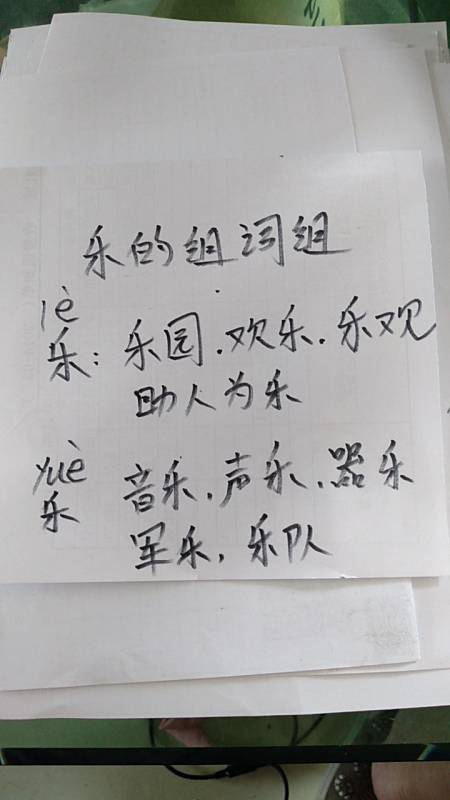 乐的组词组
lè
乐：乐园．欢乐．乐观
助人为乐
yuè
乐 音乐．声乐．器乐
军乐，乐队